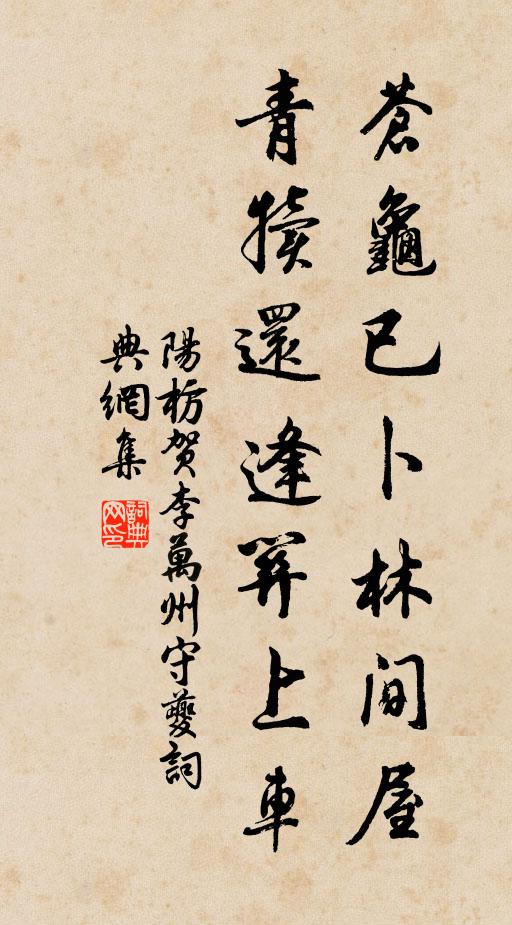 蒼龜已卜林間屋
青犢還逢笄上車
陽枋賀李萬州守夔詞
典網集
詞典
网印